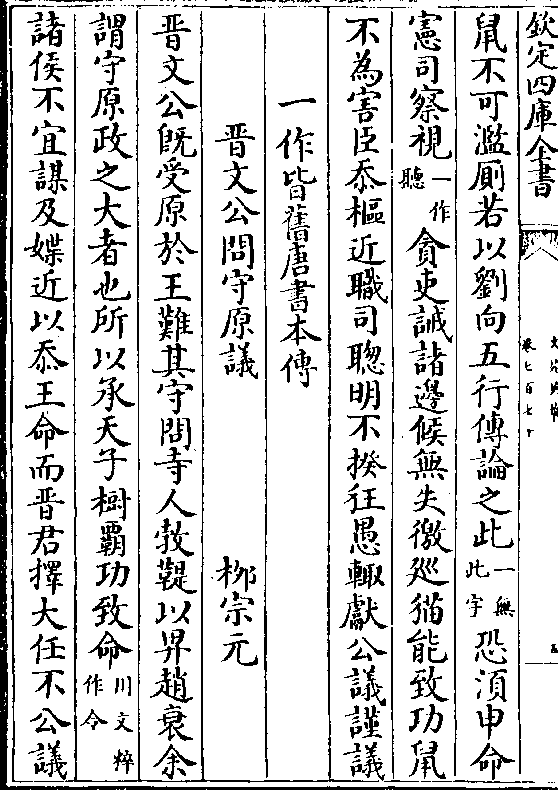 欽定四庫全書
鼠不可濫厠若以劉向五行傳論之此一無此字恐湏申命
憲司察視一作聽貪吏誡諸邊候無失徼廵猫能致功鼠
不為害臣忝樞近職司聰明不揆狂愚輙獻公議謹議
一作皆舊唐書本傳
晋文公問守原議
柳宗元
晋文公旣受原於王難其守問寺人教鞮以畀趙衰余
謂守原政之大者也所以承天子樹覇功致命川文粹作令
諸侯不宜謀及媟近以忝王命而晋君擇大任不公議